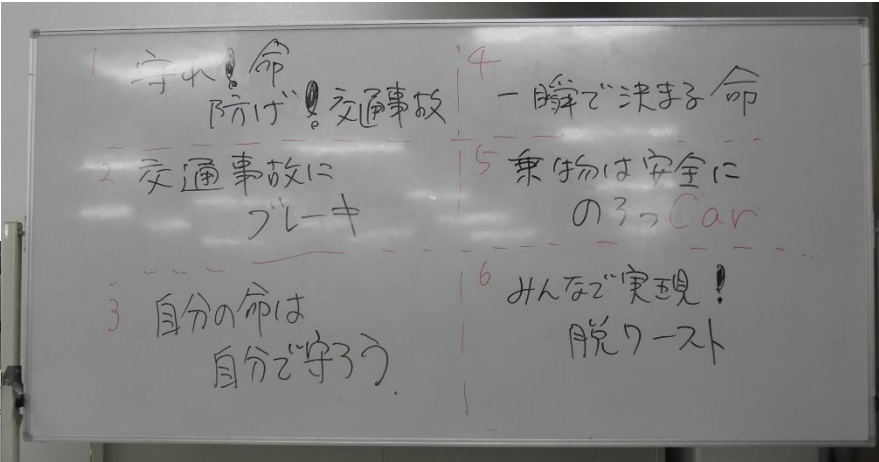 1 守れ!命
防げ!交通事故
2 交通事故に
ブレーキ
3 自分の命は
自分で守ろう.
4 一瞬で決まる命
5 乗物は安全に
のろっCar
6 みんなで実現!
脱ワースト